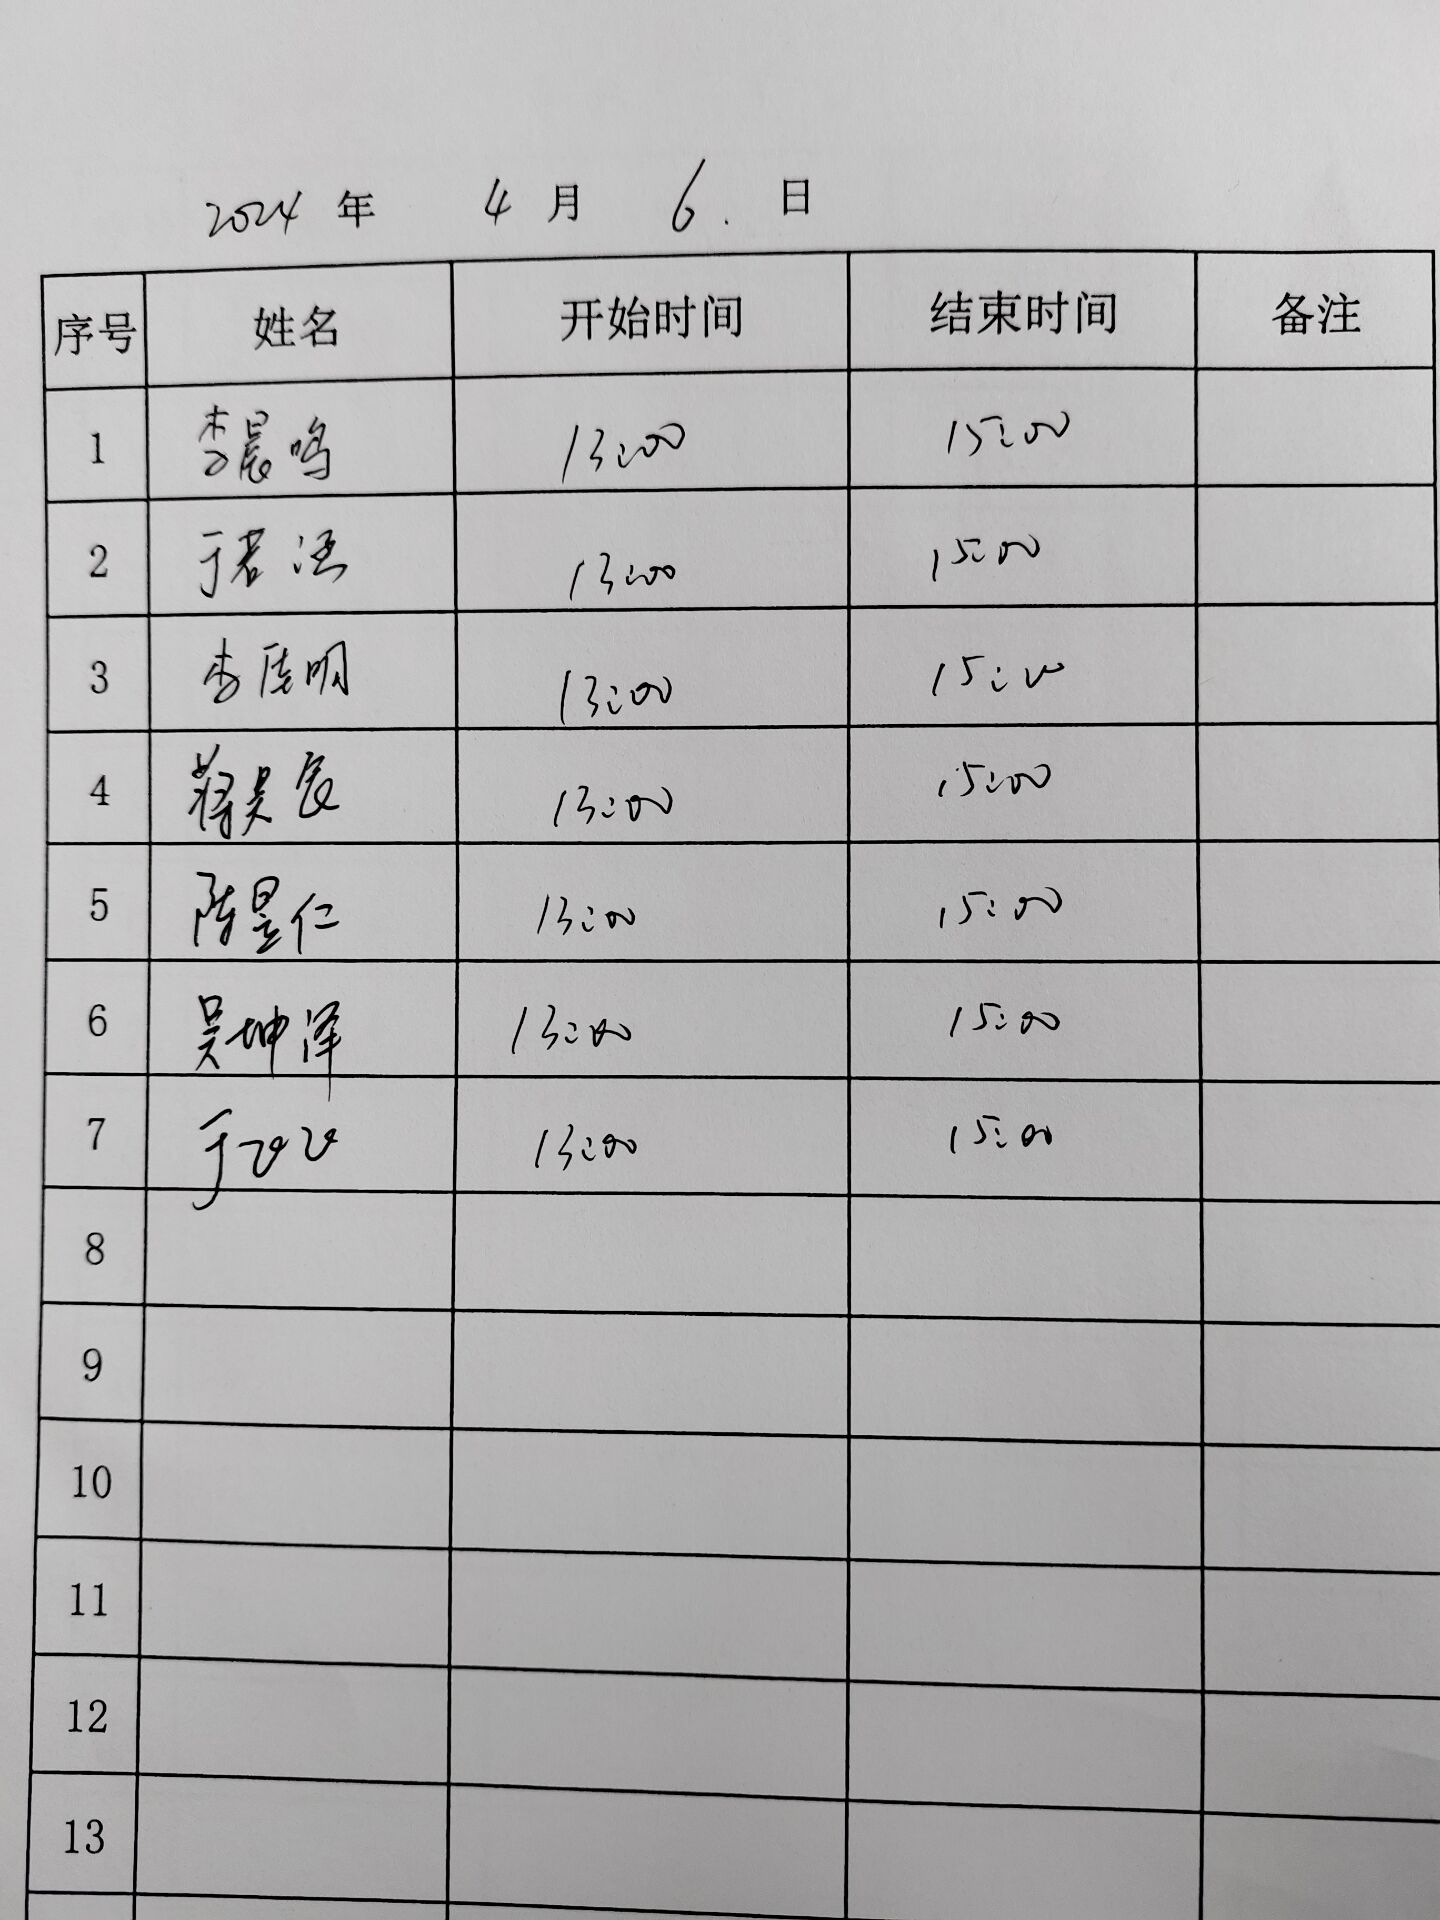 2024 年 4 月 6. 日
序号 姓名 开始时间 结束时间 备注
1 李晨鸣 13:00 15:00
2 于若 13:00 15:00
3 李 明 13:00 15:00
4 蒋昊辰 13:00 15:00
5 陈昱仁 13:00 15:00
6 吴坤泽 13:00 15:00
7 于 13:00 15:00
8
9
10
11
12
13